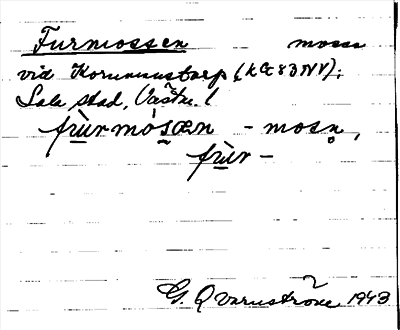 Furmossen mosse
vid Korunnustorp (kC83NV);
Sala stad, Västm. l
fùrmósæn - mosn,
fùr -
G. Qvarnström 1943